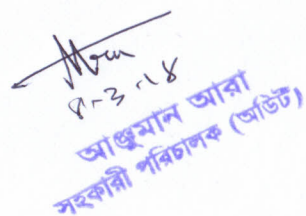 ৪-3-18
আঞ্জুমান আরা
সহকারী পরিচালক (অডিট)